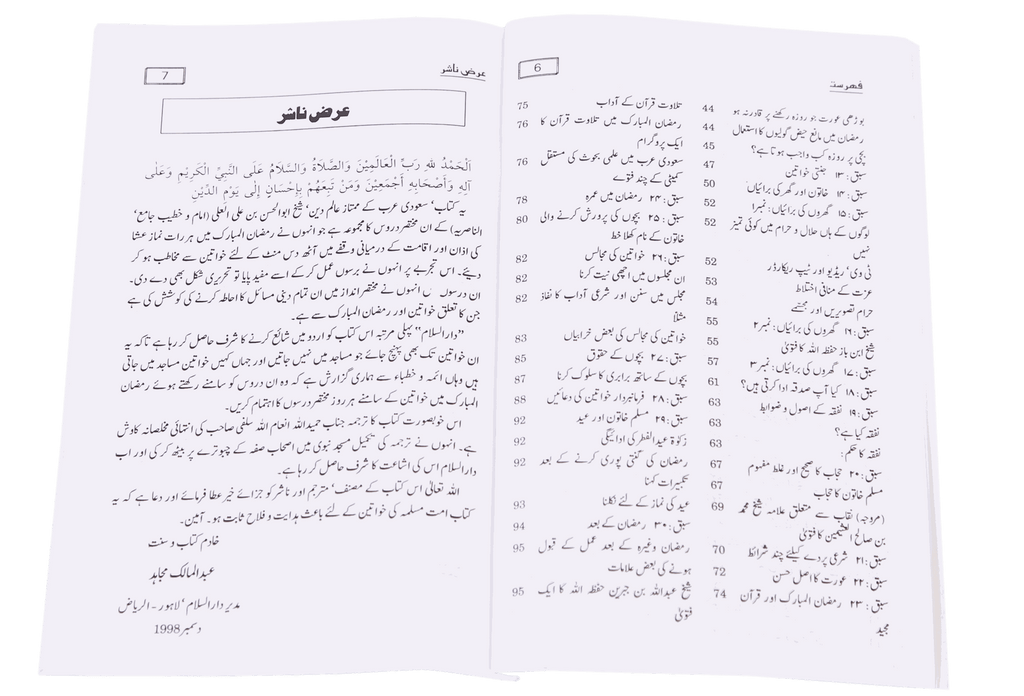 6
فهرست
بوڑھی عورت جو روزہ رکھنے پر قادر نہ ہو 44
رمضان میں مانع حیض گولیوں کا استعمال 44
بچی پر روزہ کب واجب ہوتا ہے؟ 45
سبق: ۱۳ جنتی خواتین 47
سبق: ۱۴ خاتون اور گھر کی برائیاں 50
سبق: ۱۵ گھروں کی برائیاں: نمبر۱ 52
لوگوں کے ہاں حلال و حرام میں کوئی تمیز 52
نہیں
ٹی وی، ریڈیو اور ٹیپ ریکارڈر 52
عزت کے منافی اختلاط 53
حرام تصویریں اور مجسمے 54
سبق: ۱۶ گھروں کی برائیاں: نمبر ۲ 55
شیخ ابن باز حفظہ اللہ کا فتویٰ 55
سبق: ۱۷ گھروں کی برائیاں: نمبر ۳ 57
سبق: ۱۸ کیا آپ صدقہ ادا کرتی ہیں؟ 61
سبق: ۱۹ نفقہ کے اصول و ضوابط 63
نفقہ کیا ہے؟ 63
نفقہ کا حکم: 63
سبق: ۲۰ حجاب کا صحیح اور غلط مفہوم 67
مسلم خاتون کا حجاب 67
(مروجہ) نقاب سے متعلق علامہ شیخ محمد 69
بن صالح العثیمین کا فتویٰ
سبق: ۲۱ شرعی پردے کیلئے چند شرائط 70
سبق: ۲۲ عورت کا اصل حسن 72
سبق: ۲۳ رمضان المبارک اور قرآن 74
مجید
تلاوت قرآن کے آداب 75
رمضان المبارک میں تلاوت قرآن کا 76
ایک پروگرام
سعودی عرب میں علمی بحوث کی مستقل 76
کمیٹی کے چند فتوے
سبق: ۲۴ رمضان میں عمرہ 78
سبق: ۲۵ بچوں کی پرورش کرنے والی 80
خاتون کے نام کھلا خط
سبق: ۲۶ خواتین کی مجالس 82
ان مجلسوں میں اچھی نیت کرنا 82
مجلس میں سنن اور شرعی آداب کا نفاذ 82
مثلاً
خواتین کی مجالس کی بعض خرابیاں 83
سبق: ۲۷ بچوں کے حقوق 85
بچوں کے ساتھ برابری کا سلوک کرنا 87
سبق: ۲۸ فرمانبردار خواتین کی دعائیں 88
سبق: ۲۹ مسلم خاتون اور عید 92
زکوٰۃ عید الفطر کی ادائیگی 92
رمضان کی گنتی پوری کرنے کے بعد 92
تکبیرات کہنا
عید کی نماز کے لئے نکلنا 93
سبق: ۳۰ رمضان کے بعد 94
رمضان وغیرہ کے بعد عمل کے قبول 95
ہونے کی بعض علامات
شیخ عبداللہ بن جبرین حفظہ اللہ کا ایک 95
فتویٰ
عرض ناشر
7
عرض ناشر
اَلْحَمْدُ للهِ رَبِّ الْعَالَمِيْنَ وَالصَّلَاةُ وَالسَّلَامُ عَلَى النَّبِيِّ الْكَرِيْمِ وَعَلَى
آلِهِ وَأَصْحَابِهِ أَجْمَعِيْنَ وَمَنْ تَبِعَهُمْ بِإِحْسَانٍ إِلَى يَوْمِ الدِّيْنِ
یہ کتاب، سعودی عرب کے ممتاز عالم دین، شیخ ابوالحسن بن علی العلی (امام و خطیب جامع،
الناصریہ) کے ان مختصر دروس کا مجموعہ ہے جو انہوں نے رمضان المبارک میں ہر رات نماز عشا
کی اذان اور اقامت کے درمیانی وقفے میں آٹھ دس منٹ کے لئے خواتین سے مخاطب ہو کر
دیئے۔ اس تجربے پر انہوں نے برسوں عمل کر کے اسے مفید پایا تو تحریری شکل بھی دے دی۔
ان درسوں انہوں نے مختصر انداز میں ان تمام دینی مسائل کا احاطہ کرنے کی کوشش کی ہے
جن کا تعلق خواتین اور رمضان المبارک سے ہے۔
”دارالسلام“ پہلی مرتبہ اس کتاب کو اردو میں شائع کرنے کا شرف حاصل کر رہا ہے تاکہ یہ
ان خواتین تک بھی پہنچ جائے جو مساجد میں نہیں جاتیں اور جہاں کہیں خواتین مساجد میں جاتی
ہیں وہاں ائمہ و خطباء سے ہماری گزارش ہے کہ وہ ان دروس کو سامنے رکھتے ہوئے رمضان
المبارک میں خواتین کے سامنے ہر روز مختصر درسوں کا اہتمام کریں۔
اس خوبصورت کتاب کا ترجمہ جناب حمید اللہ انعام اللہ سلفی صاحب کی انتہائی مخلصانہ کاوش
ہے۔ انہوں نے ترجمہ کی تکمیل مسجد نبوی میں اصحاب صفہ کے چبوترے پر بیٹھ کر کی اور اب
دارالسلام اس کی اشاعت کا شرف حاصل کر رہا ہے۔
اللہ تعالیٰ اس کتاب کے مصنف، مترجم اور ناشر کو جزائے خیر عطا فرمائے اور دعا ہے کہ یہ
کتاب امت مسلمہ کی خواتین کے لئے باعث ہدایت و فلاح ثابت ہو۔ آمین۔
خادم کتاب و سنت
عبدالمالک مجاہد
مدیر دارالسلام، لاہور - الریاض
دسمبر 1998